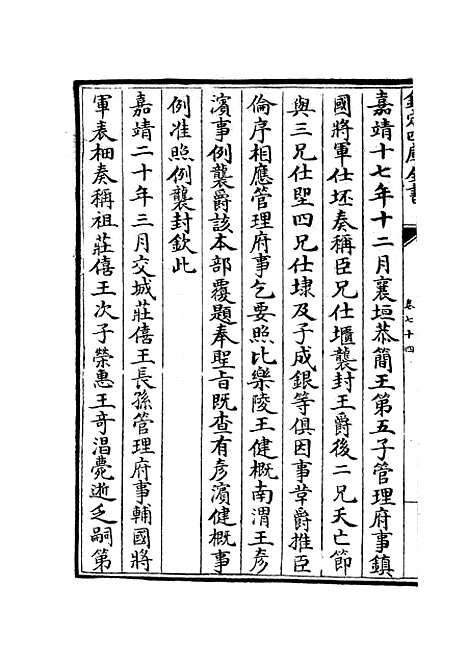 欽定四庫全書
卷七十四
嘉靖十七年十二月襄垣恭簡王第五子管理府事鎮
國將軍仕坯奏稱臣兄仕㙺襲封王爵後二兄夭亡節
與三兄仕㘴四兄仕埭及子成銀等俱因事革爵推臣
倫序相應管理府事乞要照比樂陵王健概南渭王彥
濱事例襲爵該本部覆題奉聖旨既查有彥濱健概事
例准照例襲封欽此
嘉靖二十年三月交城莊僖王長孫管理府事輔國將
軍表柚奏稱祖莊僖王次子榮惠王奇淐薨逝乏嗣第